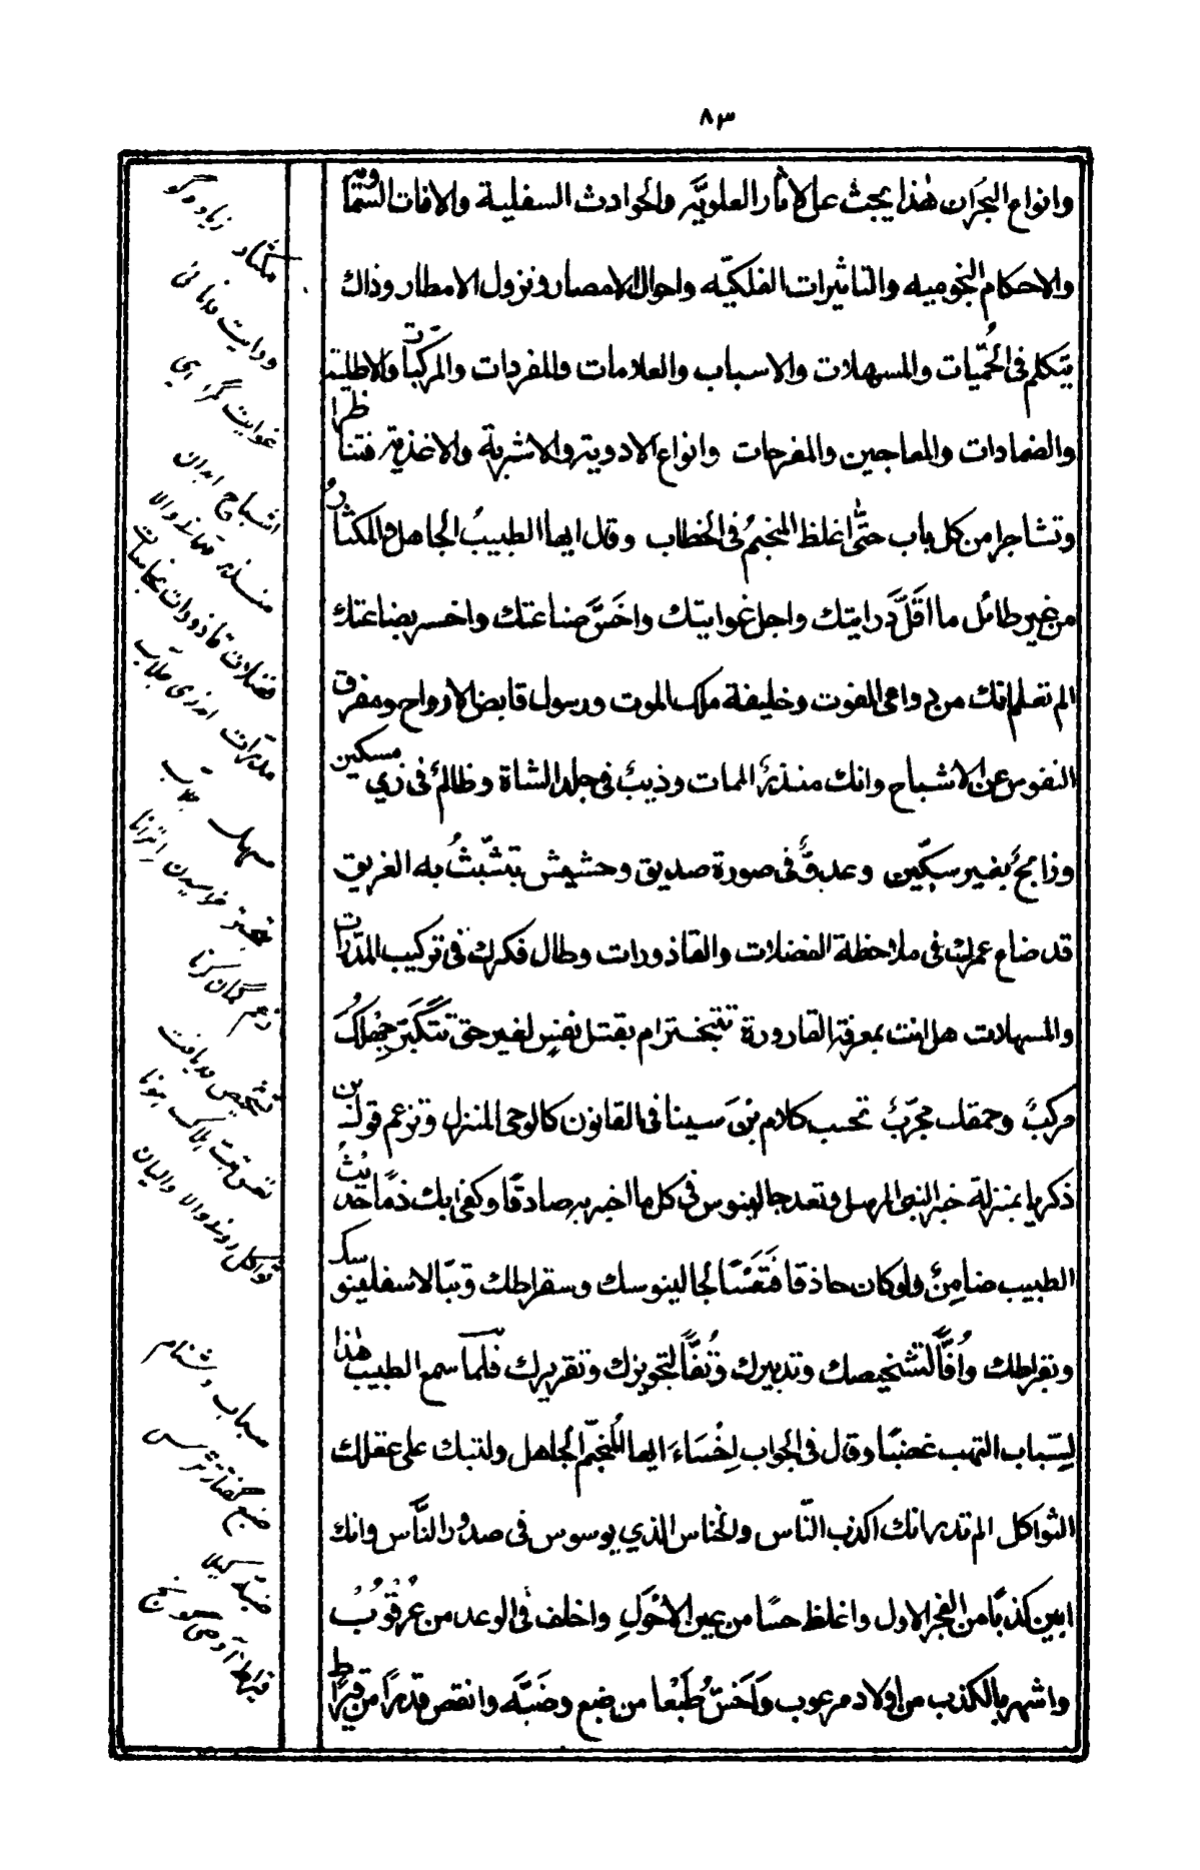 ٨٣
وانواع البحران هٰذا يبحث عل الاثار العلويَّه والحوادث السفلية والافات السَّماويه
والاحكام النجوميه والتاثيرات الفلكيّه واحوال الامصار ونزول الامطار وذاك
يتكلم فى الحُمّيات والمسهلات والاسباب والعلامات والمفردات والمركّبات والاطلية
والضمادات والمعاجين والمفرحات وانواع الادوية والاشربة والاغذية فتناظرا
وتشاجرا من كل باب حتّٰى اغلظ المنجمُ فى الخطاب وقال ايها الطبيبُ الجاهل والمكثار
من غير طائل ما اقَلَّ درايتك واجل غوايتك واخَسَّ صناعتك واخسر بضاعتك
الم تعلم انك من دواعى الفوت وخليفة ملك الموت ورسول قابض الارواح ومفرق
النفوس عن الاشباح وانك منذرُ الممات وذيبٌ فى جلد الشاة وظالمٌ فى زي مسكين
وذابحٌ بغير سكّين وعدوٌّ فى صورة صديق وحشيش يتشبّثُ به الغريق
قد ضاع عمرك فى ملاحظة الفضلات والقاذورات وطال فكرك فى تركيب المدّرات
والمسهلات هل انت بمعرفة القارورة تتبختر ام بقتل نفسٍ لغير حق تتكبَّر جهلكُ
مركبٌ وحمقك مجرّبٌ تحسب كلام بنَ سينا فى القانون كالوحى المنزل وتزعم قول بن
ذكريا بمنزلة خبر النبى المرسل وتعد جالينوس فى كل ما اخبر به صادقًا وكفٰى بك ذمًا حديثُ
الطبيب ضامنٌ ولو كان حاذقا فتَعَسًا لجالينوسك وسقراطك وتبّا لاسقلينوسك
وبقراطك واُفًّا لتشخيصك وتدبيرك وتُفًّا لتجويزك وتقريرك فلمّا سمع الطبيب هٰذا
السِّباب التهب غضبًا وقال فى الجواب اِخْسَاءَ ايها المُنجّم الجاهل ولتبك على عقلك
الثواكل الم تدر انك اكذب النّاس والخناس الذي يوسوس فى صدور النَّاس وانك
ابين كذبًا من الفجر الاول واغلظ حسًا من عين الاحْوَلِ واخلف فى الوعد من عُرقُوبُ
واشهر بالكذب من اولاد مرعوب وَاَخسّ طَبْعا من ضبع وضَبَّه وانقص قدرًا من قيراط
مكثار زیاده گو
درایت دانائی
غوایت گمراهی
اشباح ابدان